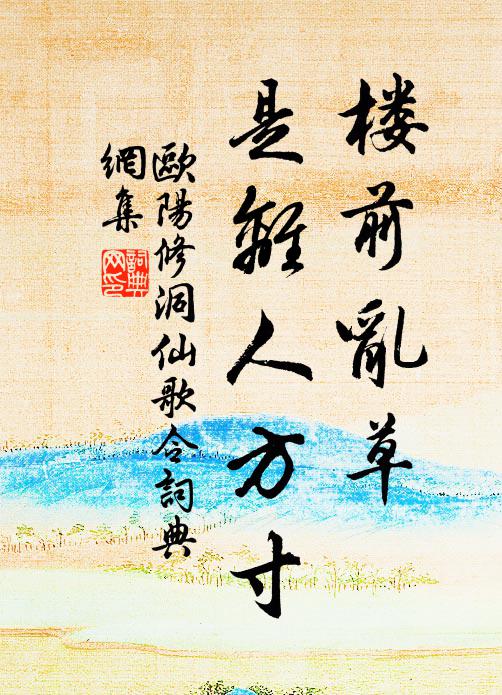 楼前亂草
是離人方寸
歐陽修洞仙歌令詞典
網集
詞典
网印